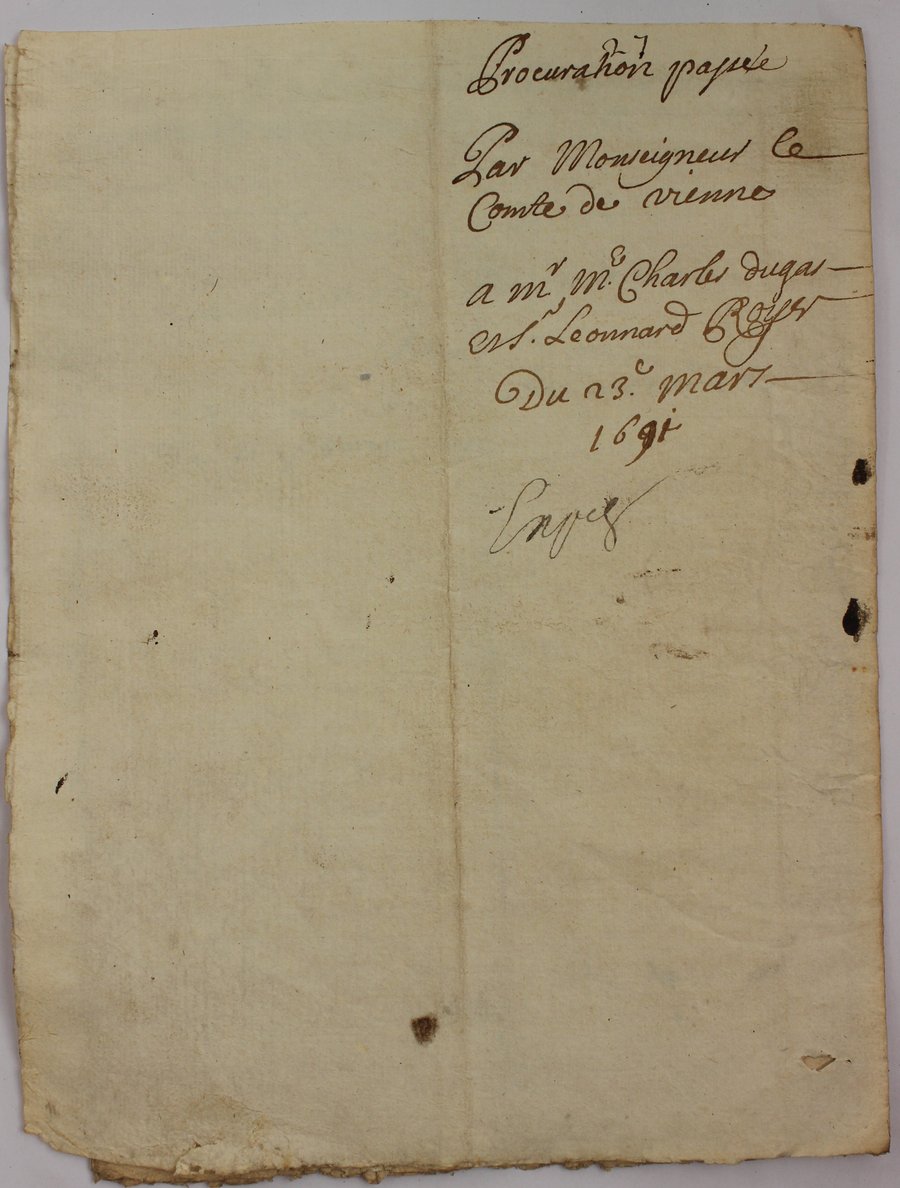 Procuration passée
Par Monseigneur le
Comte de vienne
a mr, me. Charles dugas
et sr. Leonnard Royer
Du 23e. mars
1691